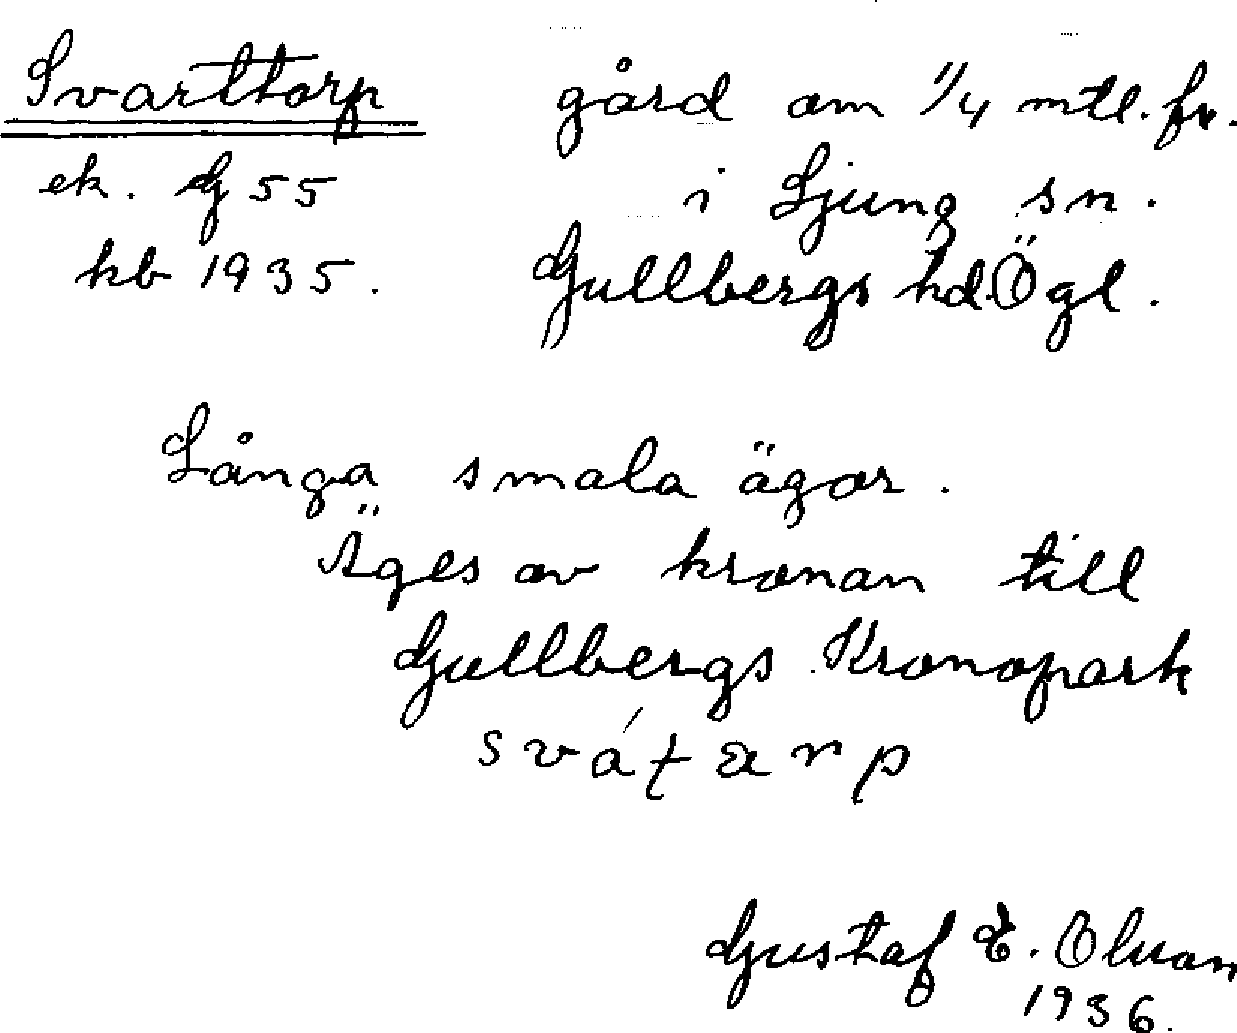 Svarttorp gård om 1/4 mtl. fr.
ek. G 55 i Ljung sn.
kb 1935. Gullbergs hd Ögl.
Långa smala ägor.
Äges av kronan till
Gullbergs Kronopark
Gustaf E. Olson
1936.